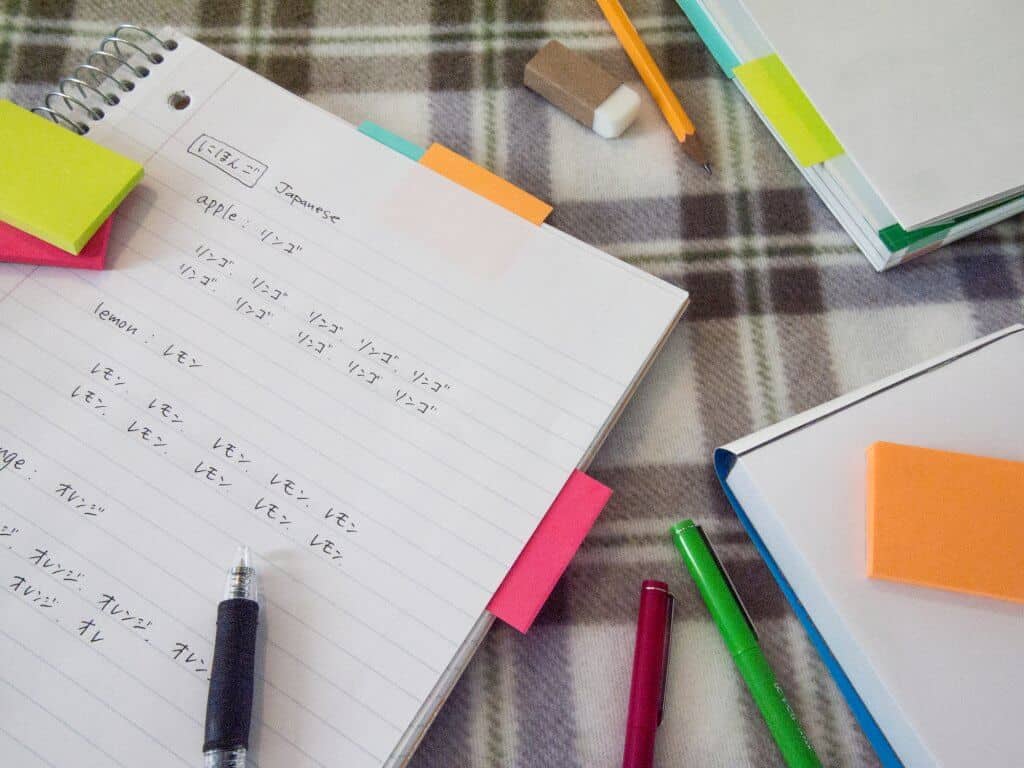 にほんご Japanese
apple: リンゴ
リンゴ、リンゴ、リンゴ、リンゴ、リンゴ
リンゴ、リンゴ、リンゴ、リンゴ、リンゴ
lemon: レモン
レモン、レモン、レモン、レモン、レモン
レモン、レモン、レモン、レモン、レモン
nge: オレンジ
ジ、オレンジ、オレンジ、オレン
オレンジ、オレ